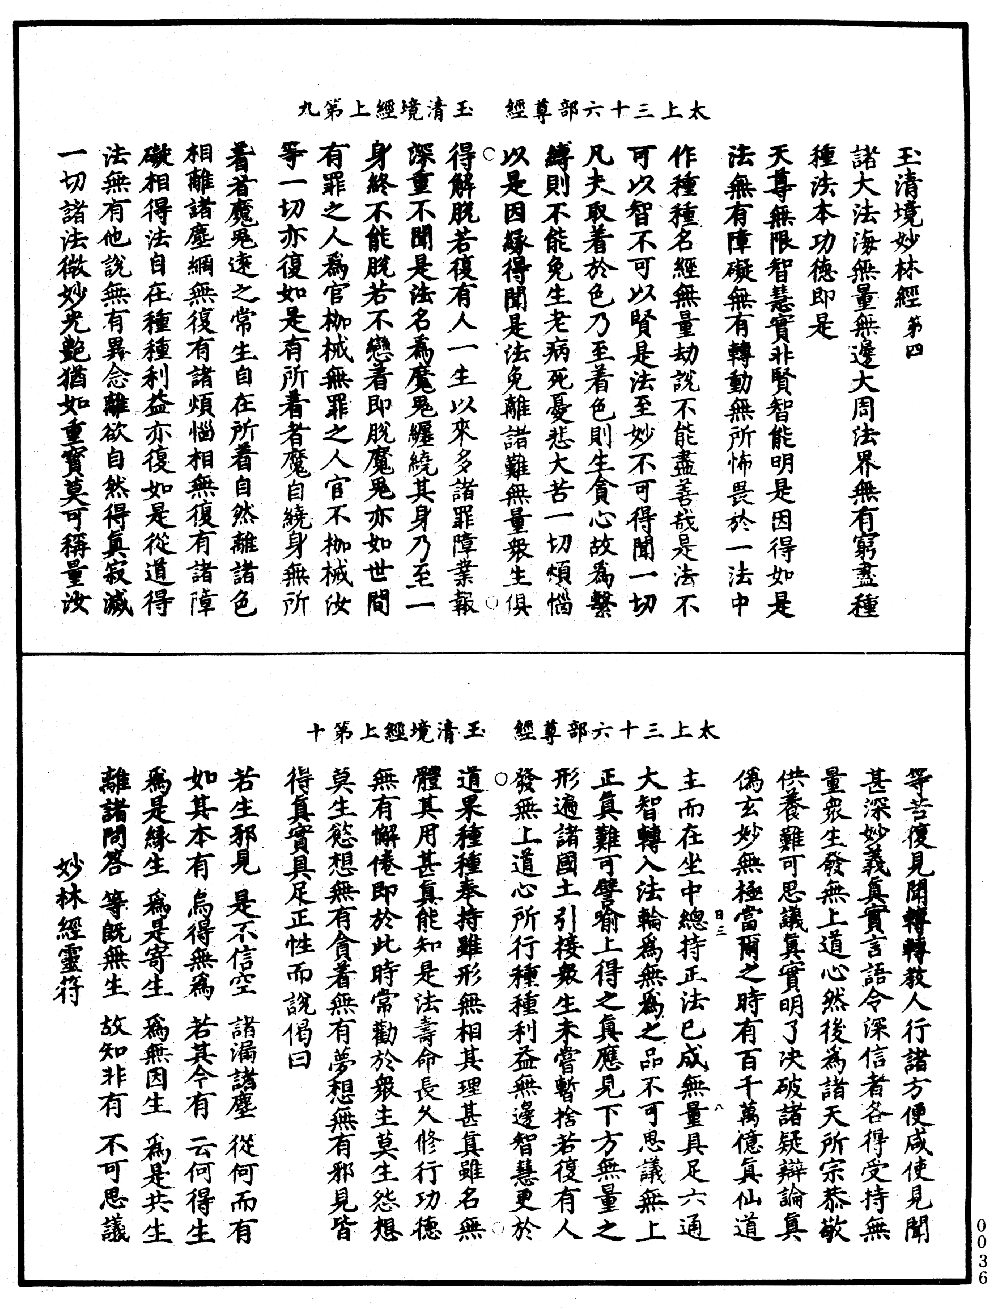 太上三十六部尊經　玉清境經上第九
玉清境妙林經第四
諸大法海無量無邊大周法界無有窮盡種
種法本功德即是
天尊無限智慧實非賢智能明是因得如是
法無有障礙無有轉動無所怖畏於一法中
作種種名經無量劫說不能盡善哉是法不
可以智不可以賢是法至妙不可得聞一切
凡夫取着於色乃至着色則生貪心故為繫
縛則不能免生老病死憂悲大苦一切煩惱
以是因緣得聞是法免離諸難無量衆生俱
得解脫若復有人一生以來多諸罪障業報
深重不聞是法名為魔鬼纏繞其身乃至一
身終不能脫若不戀着即脫魔鬼亦如世間
有罪之人為官枷械無罪之人官不枷械汝
等一切亦復如是有所着者魔自繞身無所
着者魔鬼遠之常生自在所着自然離諸色
相離諸塵網無復有諸煩惱相無復有諸障
礙相得法自在種種利益亦復如是從道得
法無有他說無有異念離欲自然得真寂滅
一切諸法微妙光艶猶如重寶莫可稱量汝
太上三十六部尊經　玉清境經上第十
等苦復見聞轉轉教人行諸方便咸使見聞
甚深妙義真實言語令深信者各得受持無
量衆生發無上道心然後為諸天所宗恭敬
供養難可思議真實明了决破諸疑辯論真
偽玄妙無極當爾之時有百千萬億真仙道
主而在坐中總持正法已成無量具足六通
大智轉入法輪為無為之品不可思議無上
正真難可譬喻上得之真應見下方無量之
形遍諸國土引接衆生未嘗暫捨若復有人
發無上道心所行種種利益無邊智慧更於
道果種種奉持雖形無相其理甚真雖名無
體其用甚真能知是法壽命長久修行功德
無有懈倦即於此時常勸於衆生莫生怨想
莫生慾想無有貪着無有夢想無有邪見皆
得真實具足正性而說偈曰
若生邪見　是不信空　諸漏諸塵　從何而有
如其本有　烏得無為　若其今有　云何得生
為是緣生　為是寄生　為無因生　為是共生
離諸問答　等既無生　故知非有　不可思議
妙林經靈符
0036